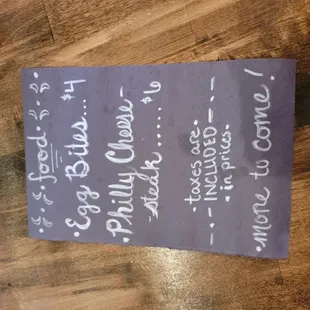 •food•
•Egg Bites... $4
•Philly Cheese-
-steak..... $6
•taxes are•
—•—INCLUDED—•—
•in prices•
•more to come!